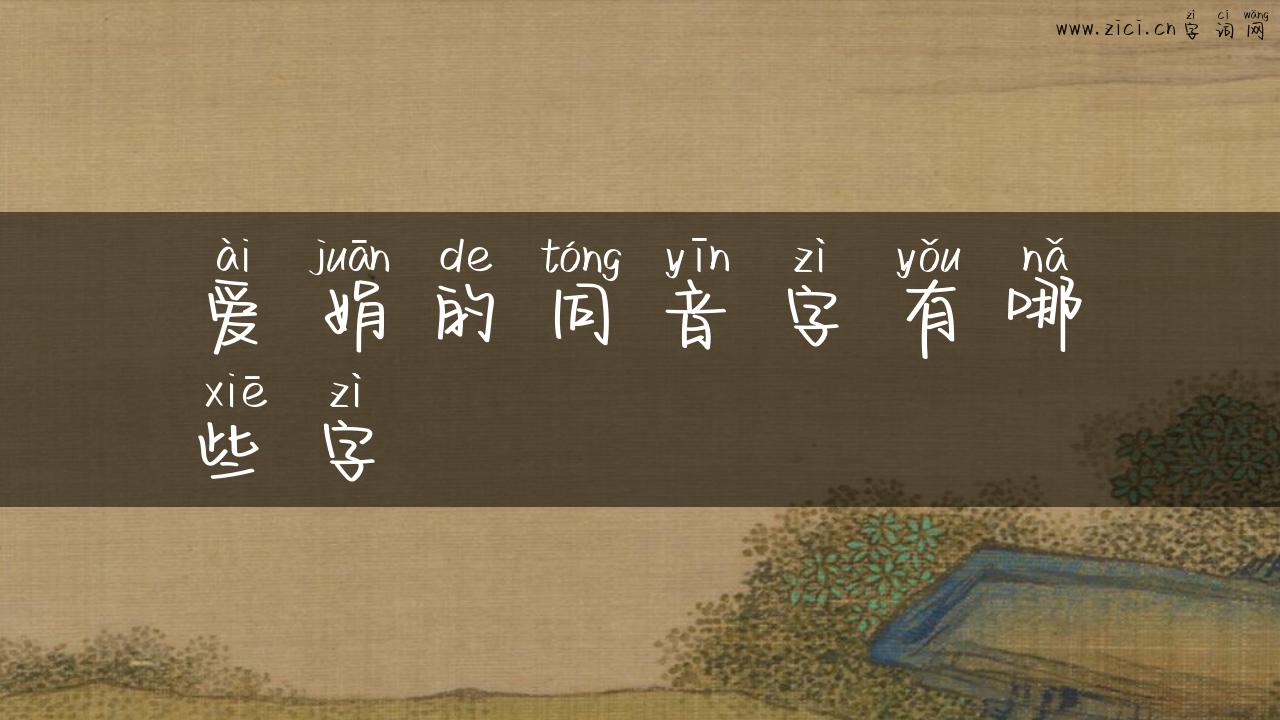 zì cí wǎng
www.zici.cn 字 词 网
ài juān de tóng yīn zì yǒu nǎ
爱 娟 的 同 音 字 有 哪
xiē zì
些 字